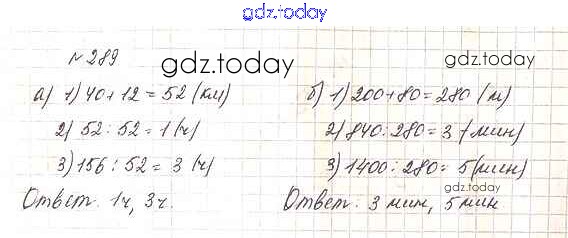 gdz.today
№289
gdz.today
gdz.today
а) 1) 40+12=52 (км)
2) 52:52=1 (ч)
3) 156:52=3 (ч)
Ответ. 1ч, 3ч.
б) 1) 200+80=280 (м)
2) 840:280=3 (мин)
3) 1400:280=5 (мин)
gdz.today
Ответ: 3 мин, 5 мин